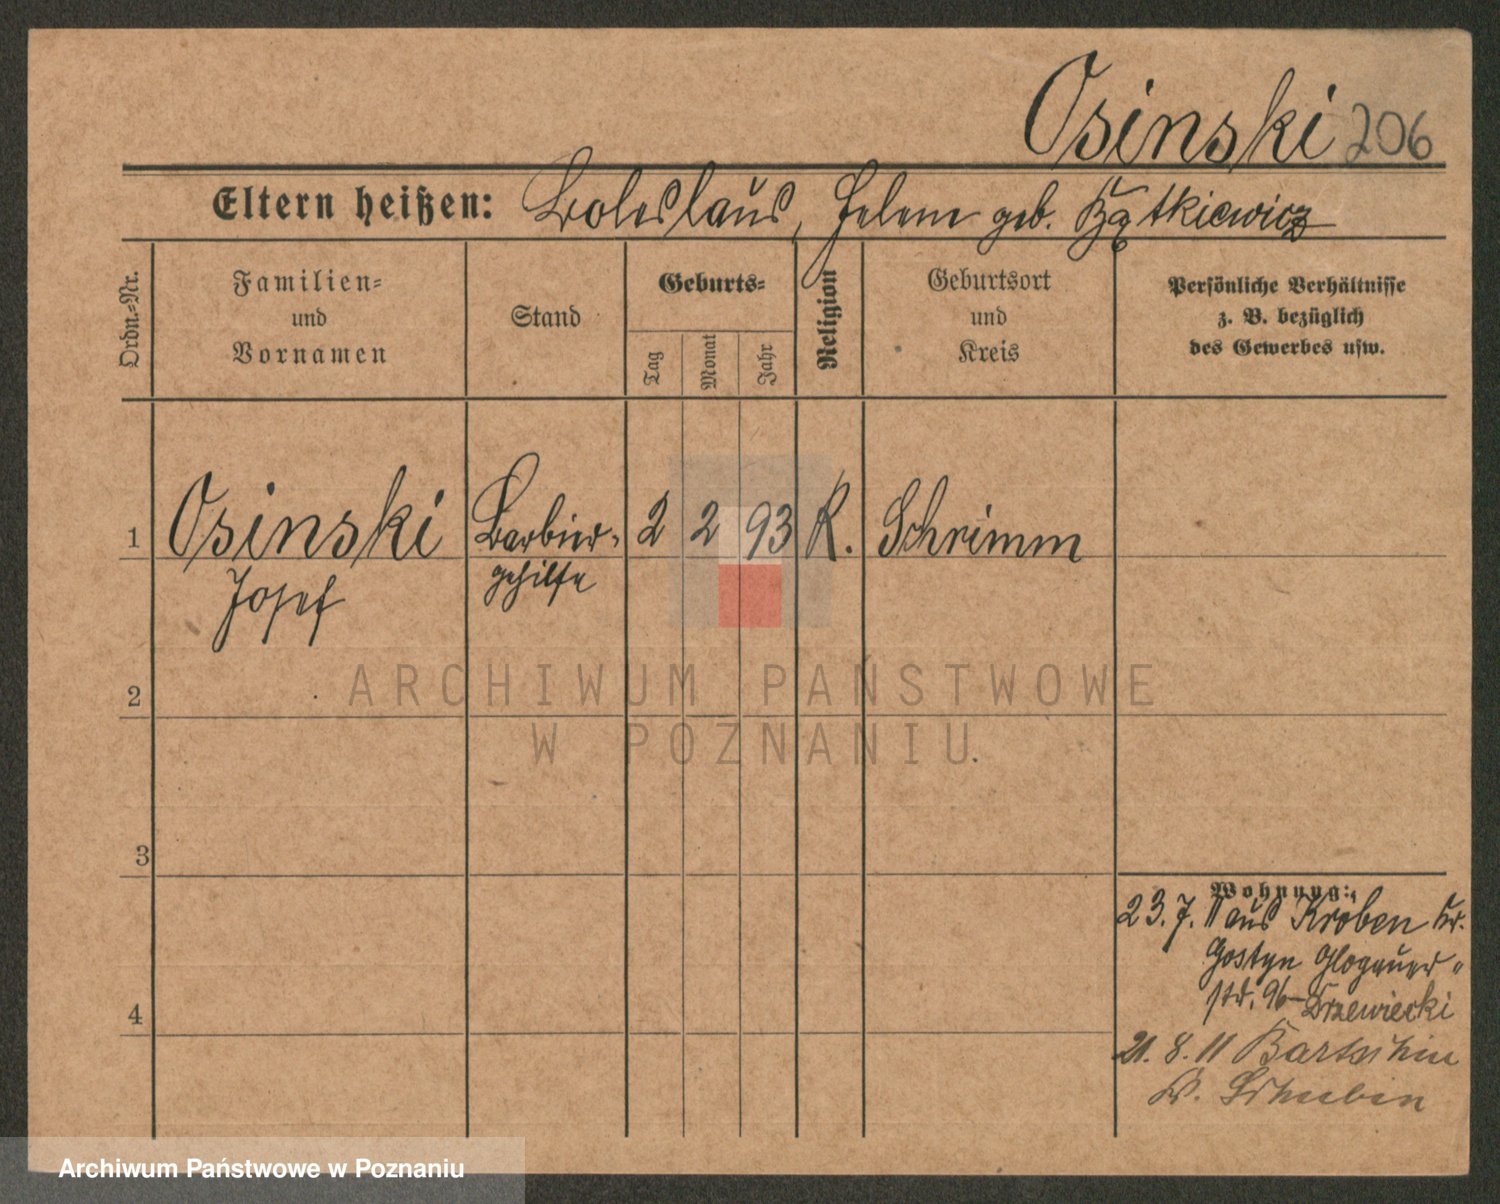 Osinski 206
Eltern heißen: Boleslaus, Helene geb. Kątkiewicz
Ordn.-Nr.
Familien-
und
Vornamen
Stand
Geburts-
Tag
Monat
Jahr
Religion
Geburtsort
und
Kreis
Persönliche Verhältnisse
z. B. bezüglich
des Gewerbes usw.
1 Osinski Barbier- 2 2 93 K. Schrimm
Josef gehilfe
2
3
4
Wohnung:
23. 7. 11 aus Kröben Kr.
Gostyn Glogauer-
str. 96 Krzewiecki
21. 8. 11 Bartschin
Kr. Schubin
ARCHIWUM PAŃSTWOWE
W POZNANIU
Archiwum Państwowe w Poznaniu